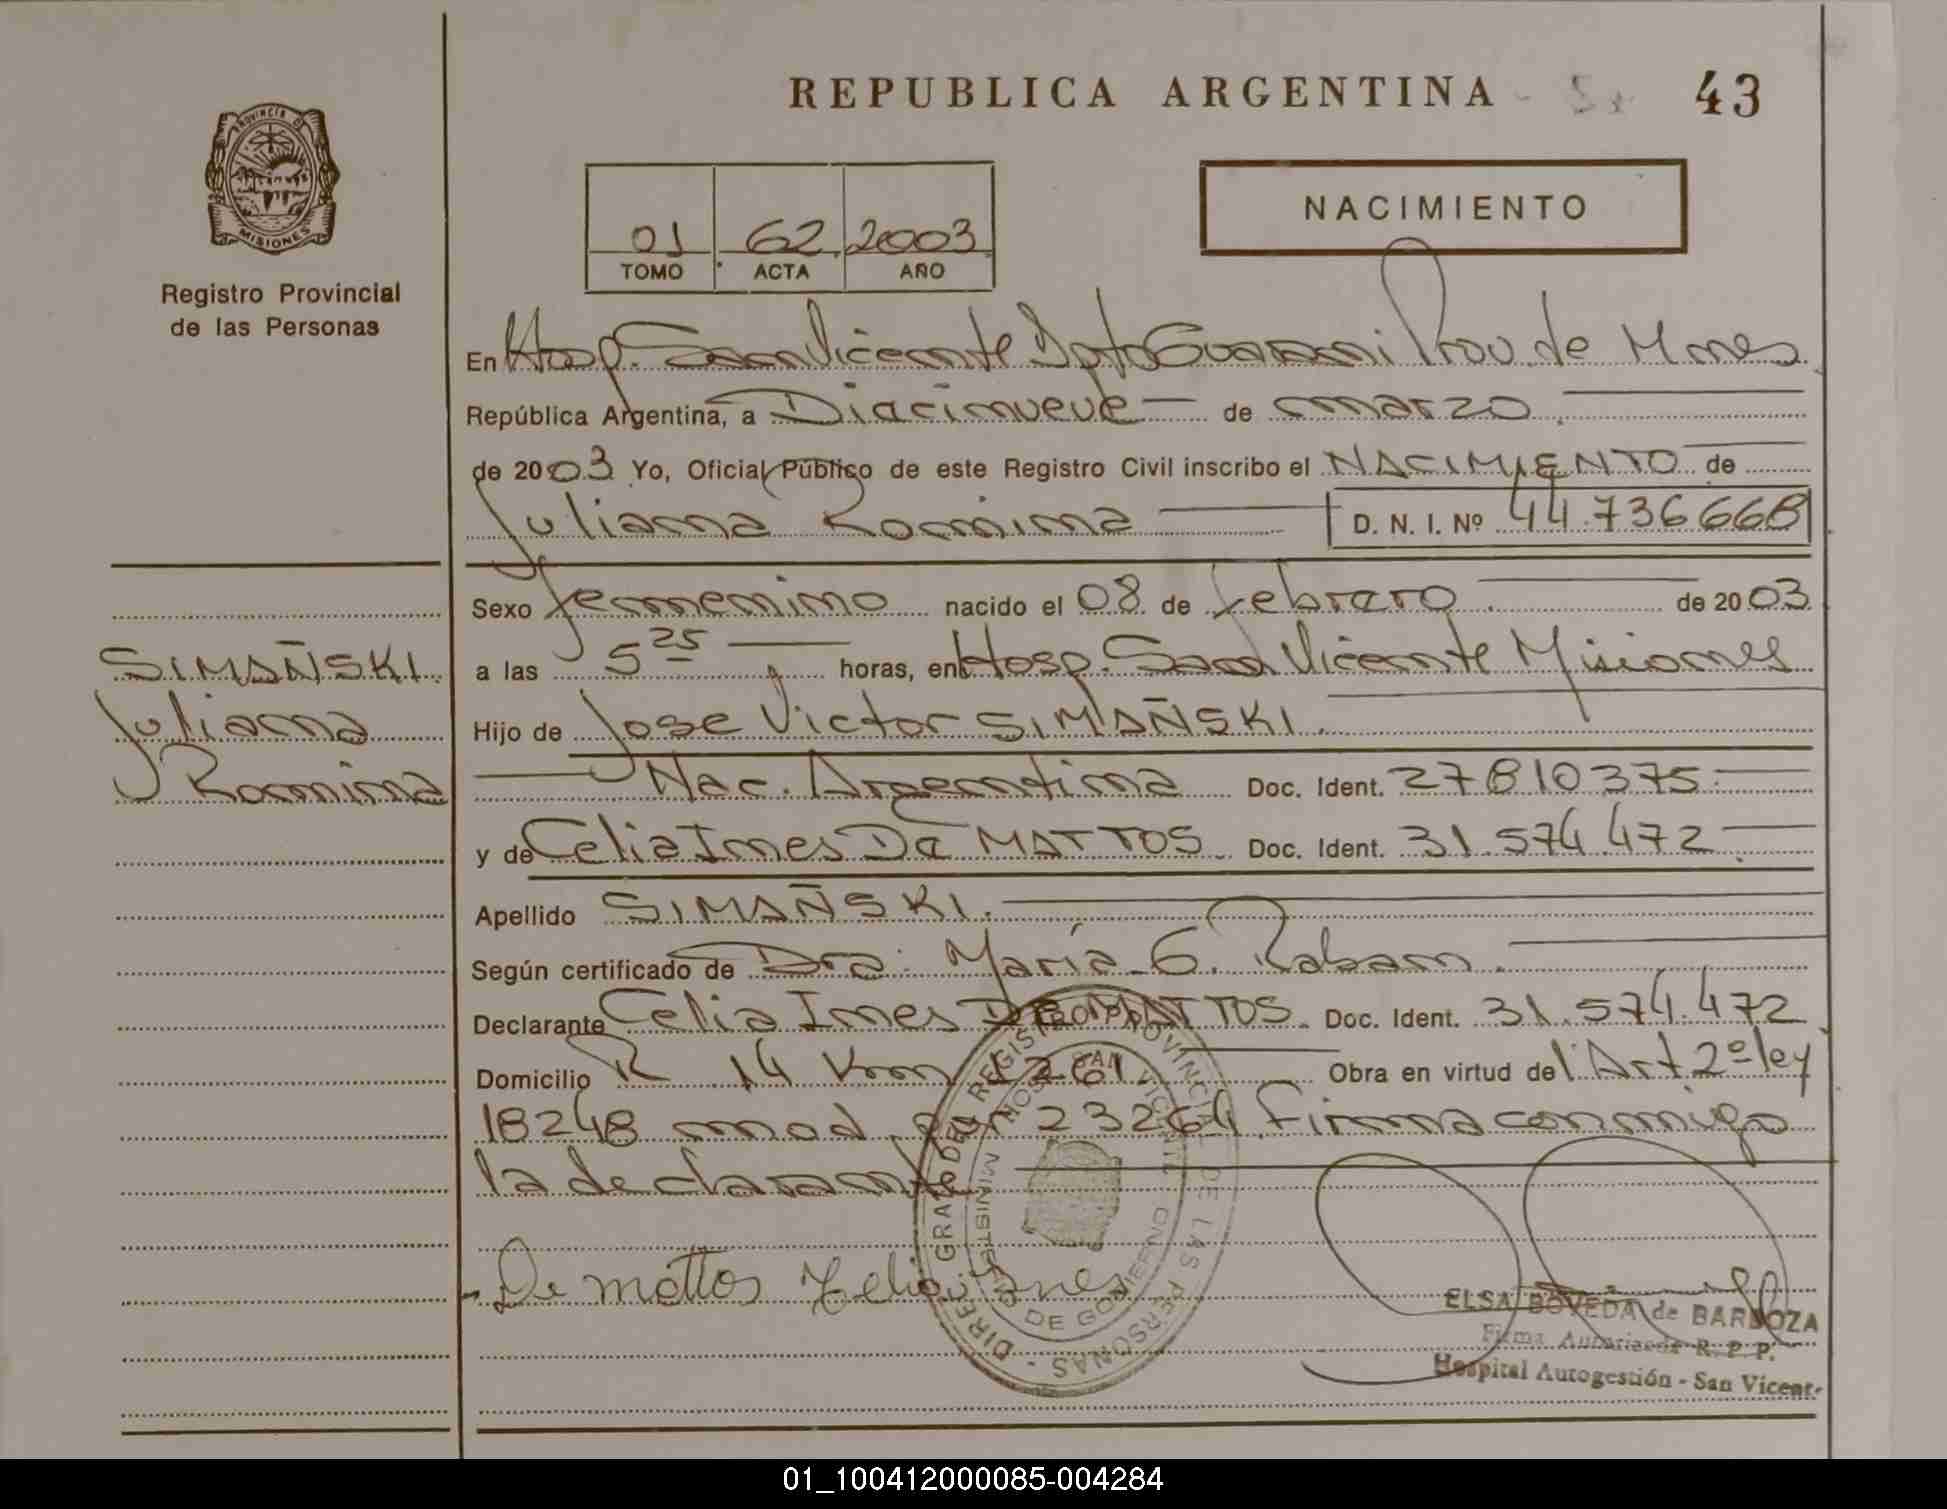 REPUBLICA ARGENTINA
43
PROVINCIA DE
MISIONES
Registro Provincial
de las Personas
01 62 2003
TOMO ACTA AÑO
NACIMIENTO
En Hosp. San Vicente Dpto Guarani Prov. de Mnes
República Argentina, a Diacinueve de marzo
de 2003 Yo, Oficial Público de este Registro Civil inscribo el NACIMIENTO de
Juliana Romina D. N. I. Nº 44.736668
Sexo femenino nacido el 08 de febrero de 2003
a las 5 25 horas, en Hosp. San Vicente Misiones
SIMAÑSKI
Juliana
Romina
Hijo de Jose Victor SIMAÑSKI.
Nac. Argentina Doc. Ident. 27810375
y de Celia Ines De MATTOS Doc. Ident. 31.574.472
Apellido SIMAÑSKI.
Según certificado de Dra. María G. Raban.
Declarante Celia Ines DE MATTOS. Doc. Ident. 31.574.472
Domicilio R 14 Km 1261 Obra en virtud del Art. 2º ley
18248 mod. por 23264 firma conmigo
la declarante
De mattos Zelia Ines
DIREC. GRAL. DEL REGISTRO PROVINCIAL DE LAS PERSONAS
HOSP. SAN VICENTE
MINISTERIO DE GOBIERNO
ELSA BOVEDA de BARBOZA
Firma Autorizada R. P. P.
Hospital Autogestión - San Vicente
01_100412000085-004284